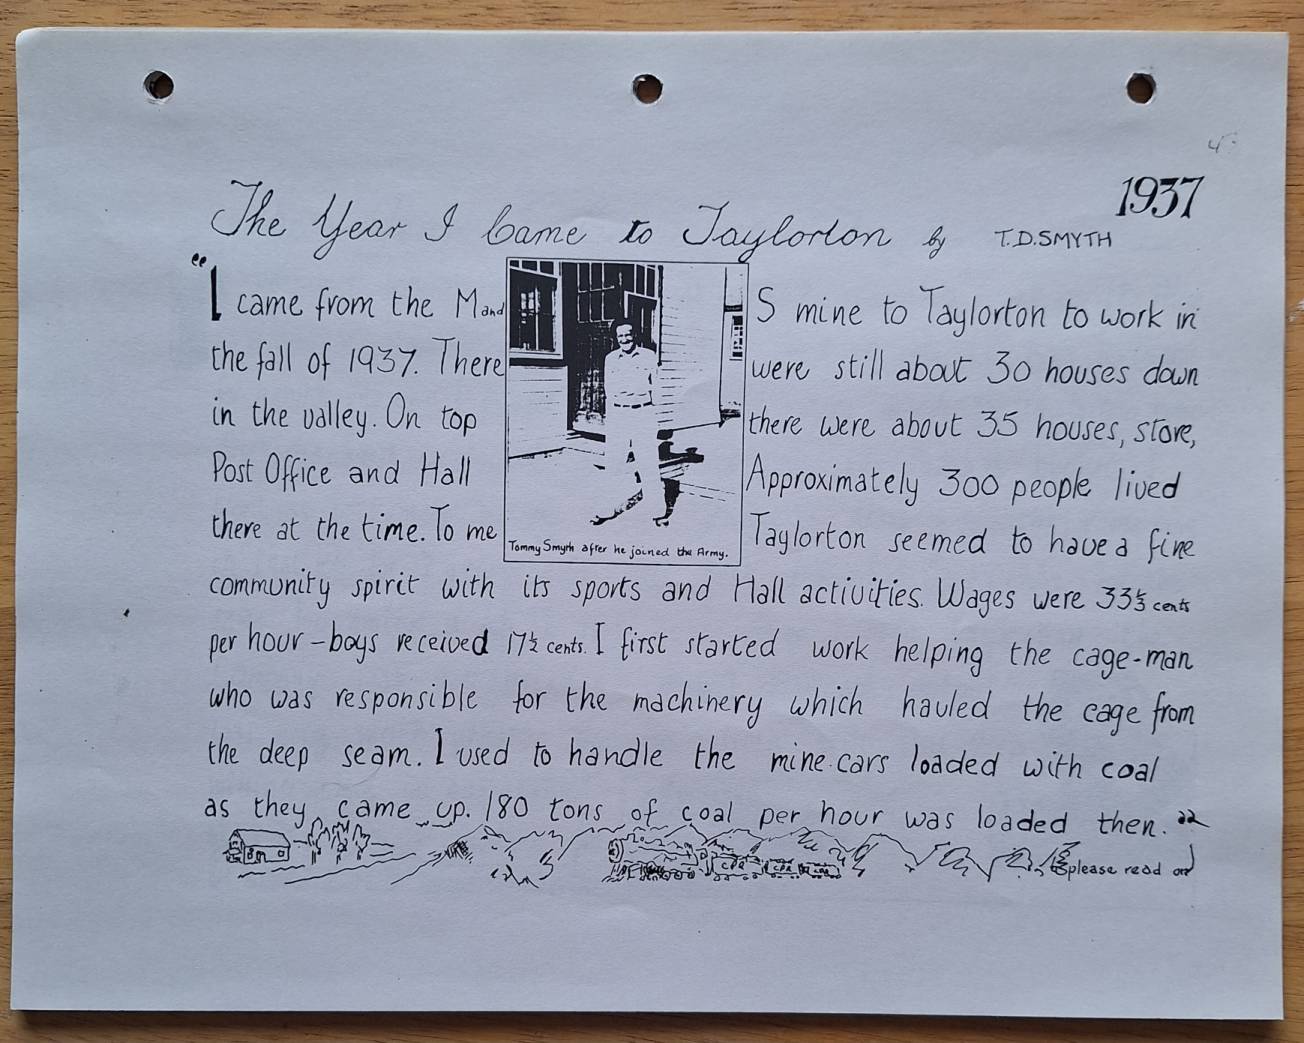 1937
The Year I Came to Taylorton by T.D.SMYTH
"I came from the M and S mine to Taylorton to work in
the fall of 1937. There were still about 30 houses down
in the valley. On top there were about 35 houses, store,
Post Office and Hall Approximately 300 people lived
there at the time. To me Taylorton seemed to have a fine
Tommy Smyth after he joined the Army.
community spirit with its sports and Hall activities. Wages were 33⅓ cents
per hour – boys received 17½ cents. I first started work helping the cage-man
who was responsible for the machinery which hauled the cage from
the deep seam. I used to handle the mine cars loaded with coal
as they came up. 180 tons of coal per hour was loaded then."
CPR CPR
please read on